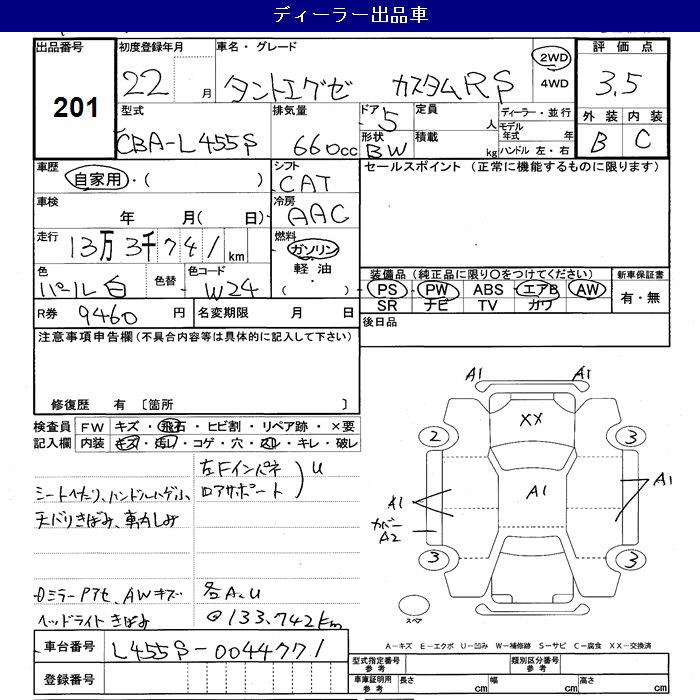 ディーラー出品車
出品番号
201
初度登録年月
22 月
車名・グレード
タントエグゼ カスタムRS
2WD
4WD
評価点
3.5
外装 内装
B C
型式
CBA-L455S
排気量
660cc
ドア
5
形状
BW
定員
人
積載
kg
ディーラー・並行
モデル年式 年
ハンドル 左・右
車歴
自家用・( )
シフト
CAT
セールスポイント (正常に機能するものに限ります)
車検
年 月( 日)
冷房
AAC
走行
13万3千741km
燃料
ガソリン
軽油
( )
色
パール白
色替
色コード
W24
装備品 (純正品に限り○をつけてください)
PS PW ABS エアB AW
SR ナビ TV カワ
新車保証書
有・無
R券 9460 円
名変期限 月 日
後日品
注意事項申告欄(不具合内容等は具体的に記入して下さい)
修復歴 有 〔箇所 〕
検査員記入欄
FW キズ・飛石・ヒビ割・リペア跡・×要
内装 キズ・汚レ・コゲ・穴・スレ・キレ・破レ
左Fインパネ
ロアサポート
U
シートヘタリ、ハンドルハゲ小、
天バリきばみ、車内しみ
ドミラーPアセ、AWキズ 各A、U
ヘッドライトきばみ ◎133.742km
A1
A1
XX
2
3
A1
A1
A1
カバー
A2
3
3
スペア
A-キズ E-エクボ U-凹み W-補修跡 S-サビ C-腐食 XX-交換済
車台番号 L455S-0044771
登録番号
型式指定番号
参考
類別区分番号
参考
車庫証明用
参考
長さ cm
幅 cm
高さ cm